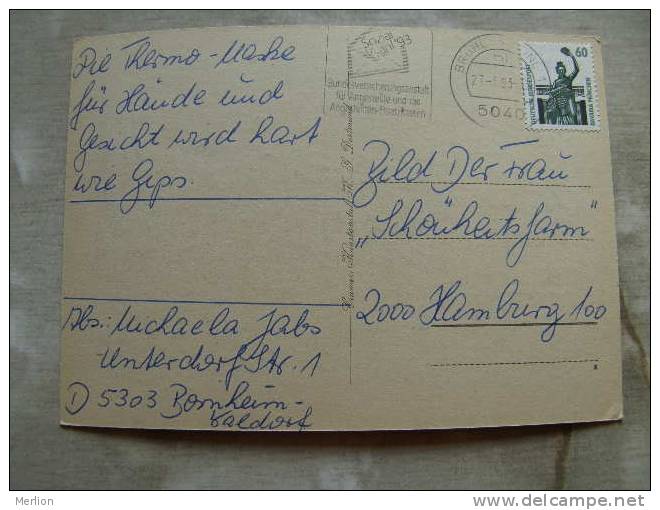 Die Thermo-Maske
für Hände und
Gesicht wird hart
wie Gips.
Abs.: Michaela Jabs
Unterdorfstr. 1
D 5303 Bornheim-
Waldorf
Sozial
wahl 93
Bundesversicherungsanstalt
für Angestellte und die
Angestellten-Ersatzkassen
BRÜHL
5040
60
DEUTSCHE BUNDESPOST
BAVARIA MÜNCHEN
Bild Der Frau
„Schönheitsfarm"
2000 Hamburg 100
Merlion
www.delcampe.net